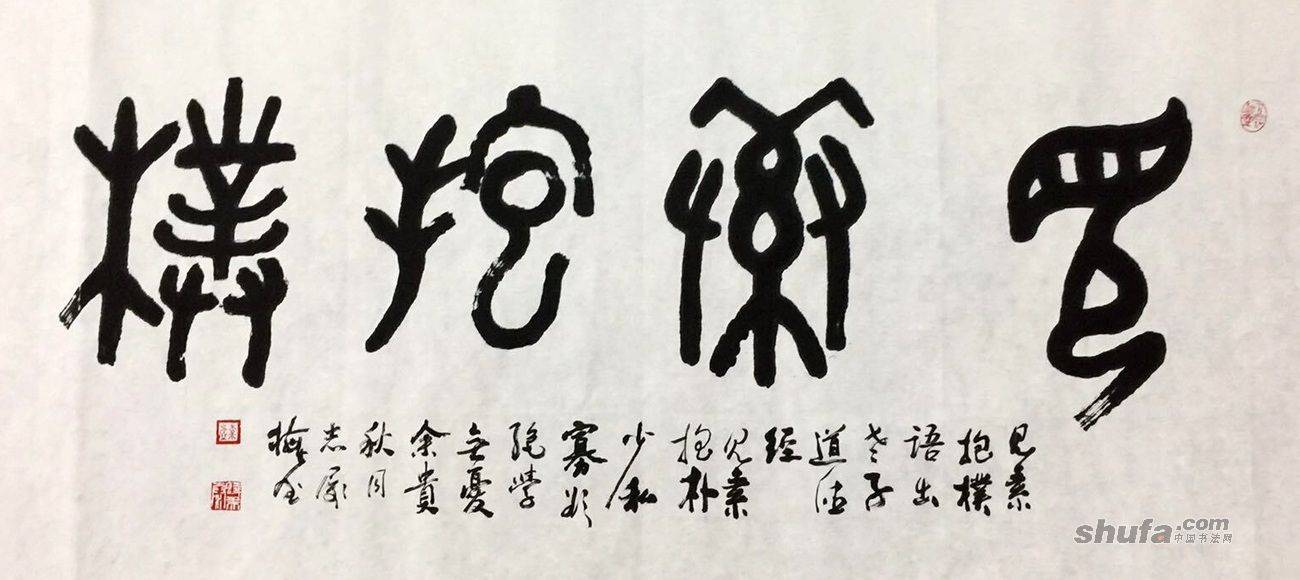 見素抱樸
見素
抱樸
語出
老子
道德
經
見素
抱朴
少私
寡欲
絕學
無憂
余貴
秋月
志廠
梅
shufa.com
中国书法网